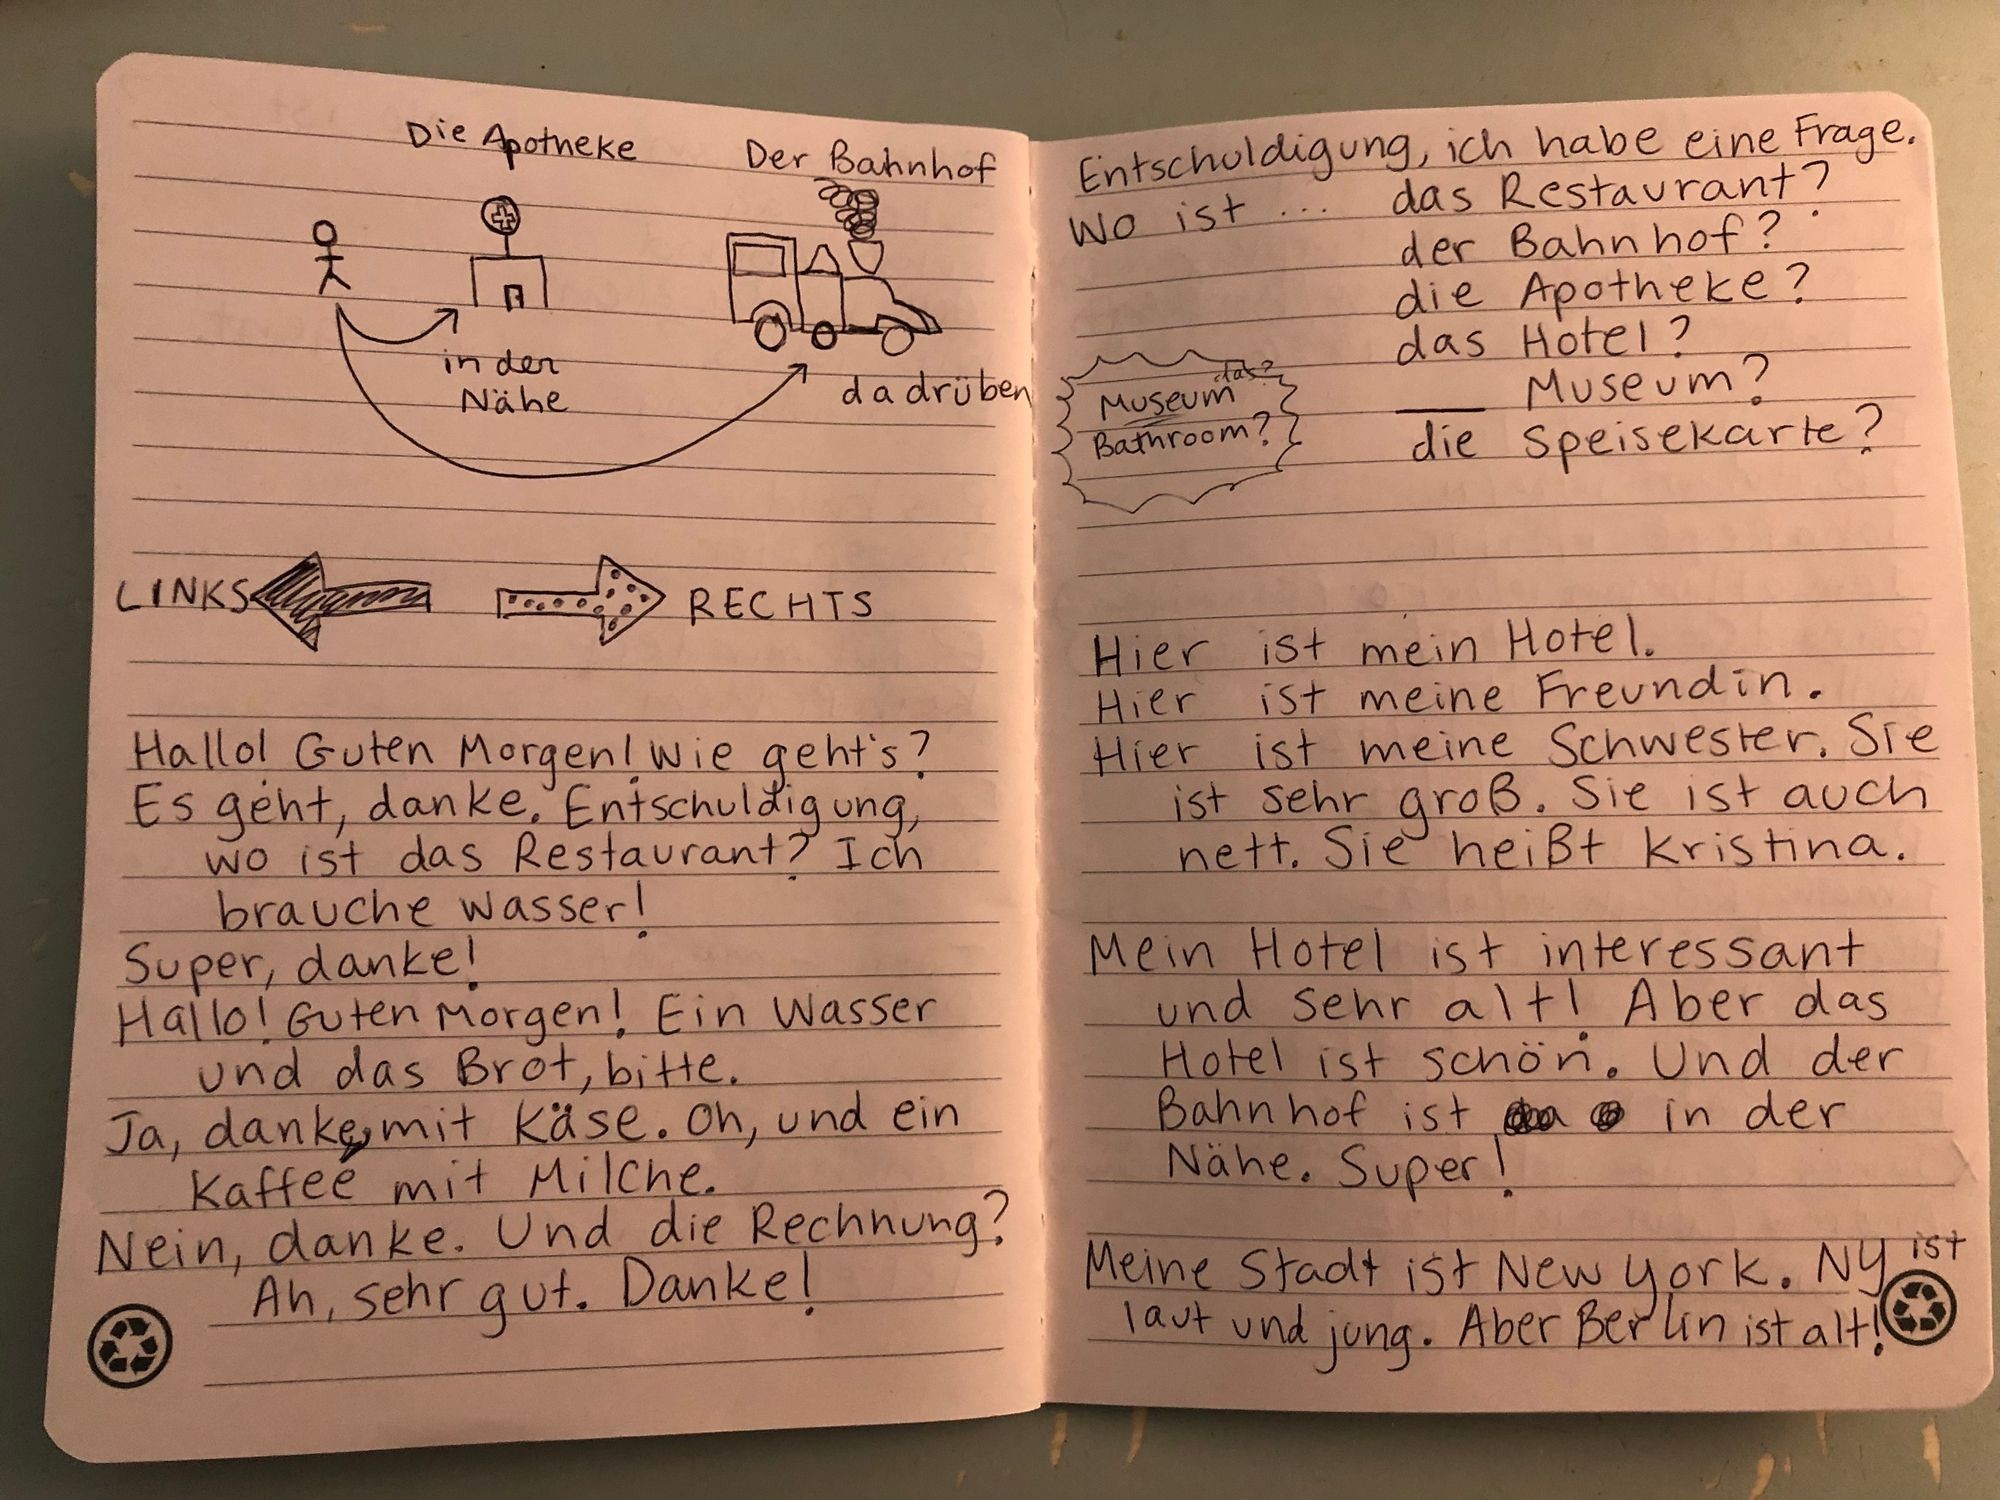 Die Apotheke
Der Bahnhof
in der
Nähe
da drüben
LINKS
RECHTS
Hallo! Guten Morgen! Wie geht's?
Es geht, danke. Entschuldigung,
wo ist das Restaurant? Ich
brauche Wasser!
Super, danke!
Hallo! Guten Morgen! Ein Wasser
und das Brot, bitte.
Ja, danke, mit Käse. Oh, und ein
Kaffee mit Milche.
Nein, danke. Und die Rechnung?
Ah, sehr gut. Danke!
Entschuldigung, ich habe eine Frage.
Wo ist ... das Restaurant?
der Bahnhof?
die Apotheke?
das Hotel?
___ Museum?
die Speisekarte?
das?
Museum
Bathroom?
Hier ist mein Hotel.
Hier ist meine Freundin.
Hier ist meine Schwester. Sie
ist sehr groß. Sie ist auch
nett. Sie heißt Kristina.
Mein Hotel ist interessant
und sehr alt! Aber das
Hotel ist schön. Und der
Bahnhof ist in der
Nähe. Super!
Meine Stadt ist New York. NY ist
laut und jung. Aber Berlin ist alt!